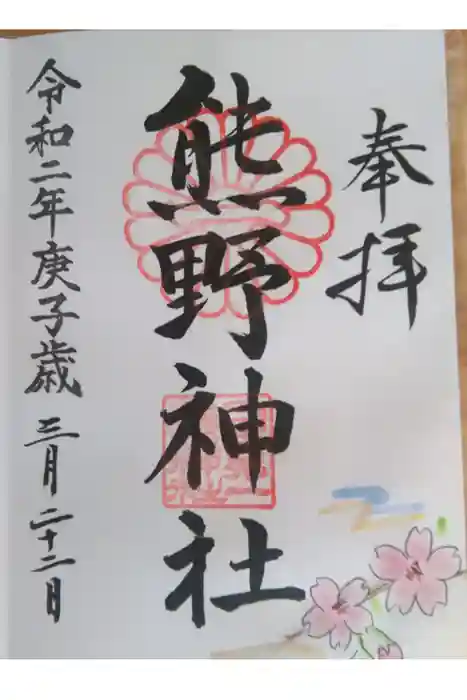 奉拝
熊野神社
令和二年庚子歳 三月二十二日